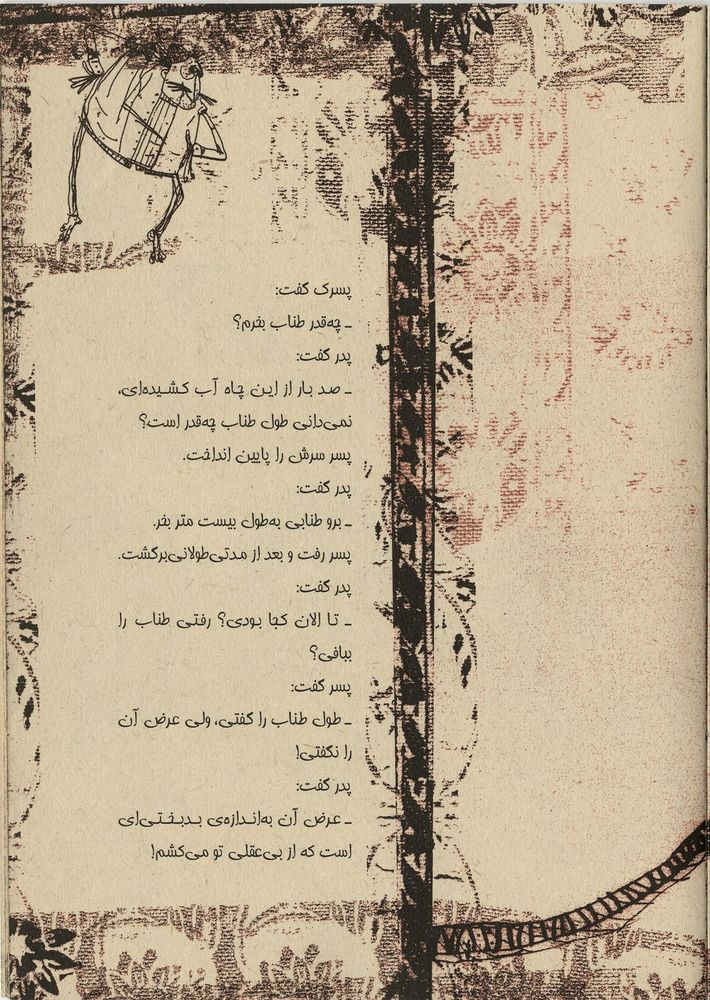 پسرک گفت:
ـ چه‌قدر طناب بخرم؟
پدر گفت:
ـ صد بار از این چاه آب کشیده‌ای،
نمی‌دانی طول طناب چه‌قدر است؟
پسر سرش را پایین انداخت.
پدر گفت:
ـ برو طنابی به‌طول بیست متر بخر.
پسر رفت و بعد از مدتی‌طولانی‌برگشت.
پدر گفت:
ـ تا الان کجا بودی؟ رفتی طناب را
ببافی؟
پسر گفت:
ـ طول طناب را گفتی، ولی عرض آن
را نگفتی!
پدر گفت:
ـ عرض آن به‌اندازه‌ی بدبختی‌ای
است که از بی‌عقلی تو می‌کشم!